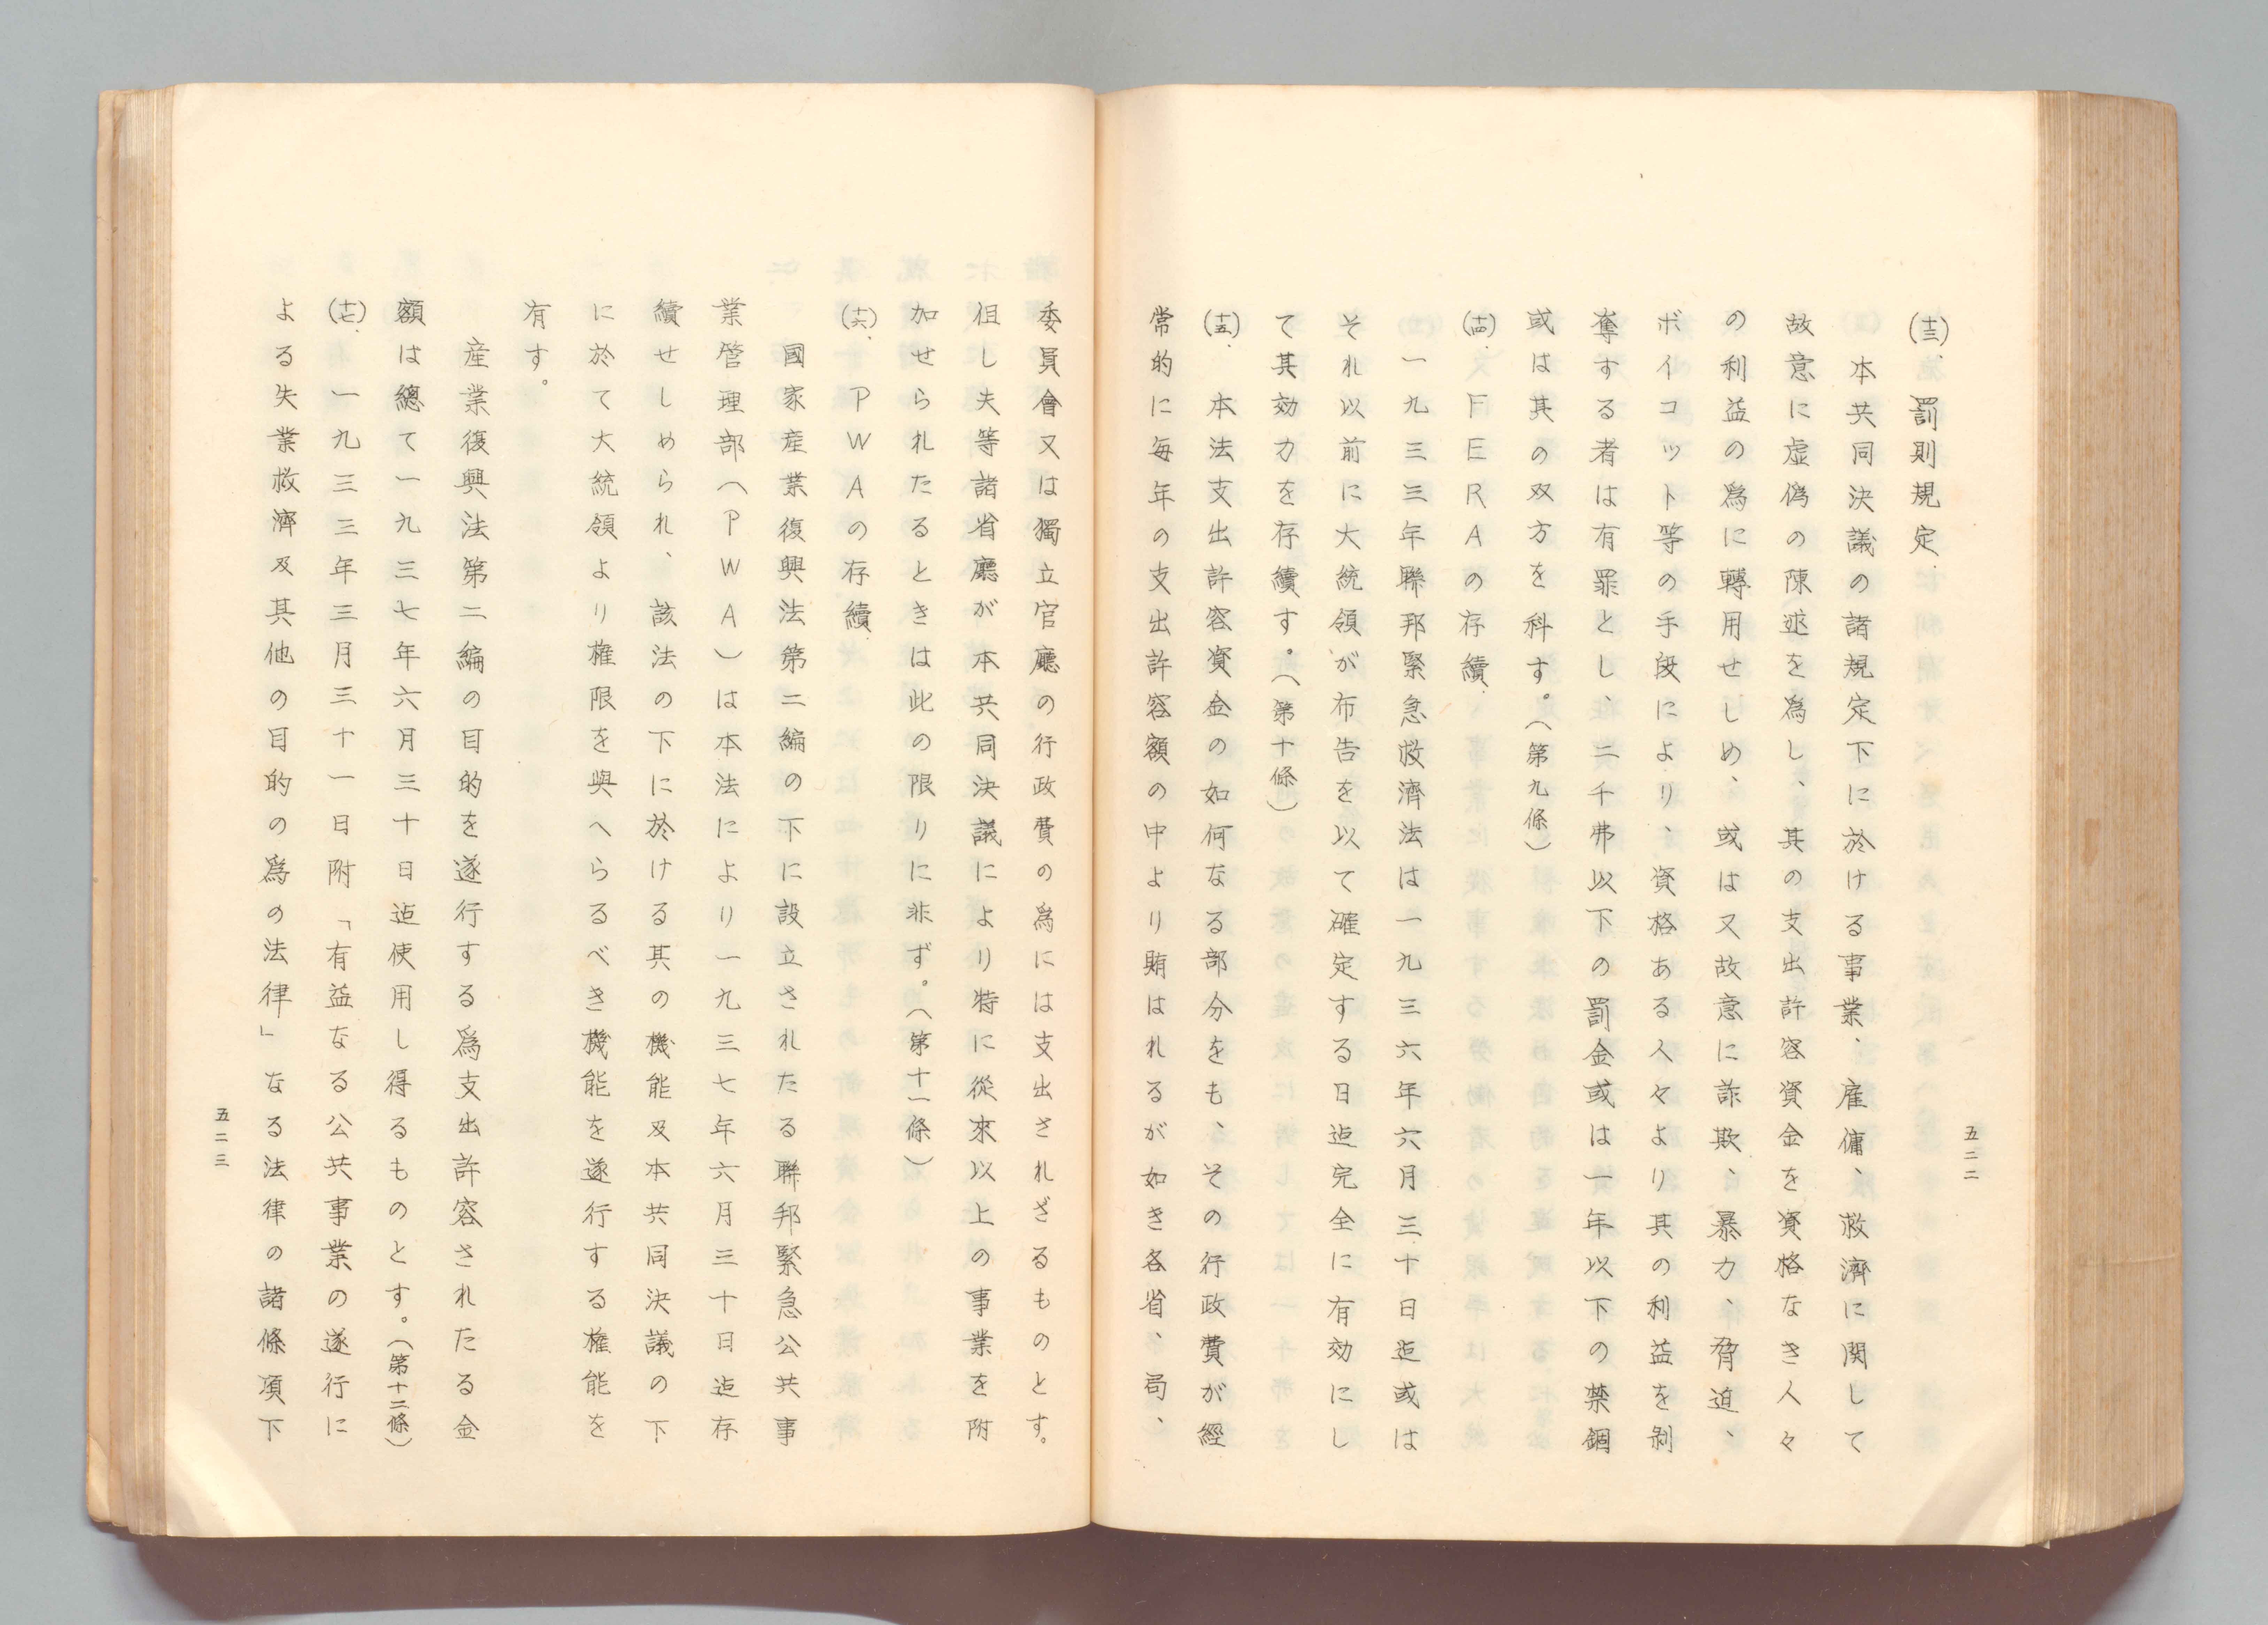 五二二
(十三)、罰則規定.
本共同決議の諸規定下に於ける事業、雇傭、救濟に関して
故意に虛偽の陳述を為し、其の支出許容資金を資格なき人々
の利益の爲に轉用せしめ、或は又故意に詐欺、暴力、脅迫、
ボイコット等の手段により、資格ある人々より其の利益を剝
奪する者は有罪とし、二千弗以下の罰金或は一年以下の禁錮
或は其の双方を科す。(第九條)
(十四)、FERAの存續.
一九三三年聯邦緊急救濟法は一九三六年六月三十日迄或は
それ以前に大統領が布告を以て確定する日迄完全に有効にし
て其効力を存續す。(第十條)
(十五)、本法支出許容資金の如何なる部分をも、その行政費が經
常的に每年の支出許容額の中より賄はれるが如き各省、局、
委員會又は獨立官廳の行政費の爲には支出されざるものとす。
但し夫等諸省廳が本共同決議により特に從來以上の事業を附
加せられたるときは此の限りに非ず。(第十一條)
(十六)、PWAの存續.
國家産業復興法第二編の下に設立されたる聯邦緊急公共事
業管理部(PWA)は本法により一九三七年六月三十日迄存
續せしめられ、該法の下に於ける其の機能及本共同決議の下
に於て大統領より權限を與へらるべき機能を遂行する權能を
有す。
産業復興法第二編の目的を遂行する爲支出許容されたる金
額は總て一九三七年六月三十日迄使用し得るものとす。(第十二條)
(十七)、一九三三年三月三十一日附「有益なる公共事業の遂行に
よる失業救濟及其他の目的の爲の法律」なる法律の諸條項下
五二三